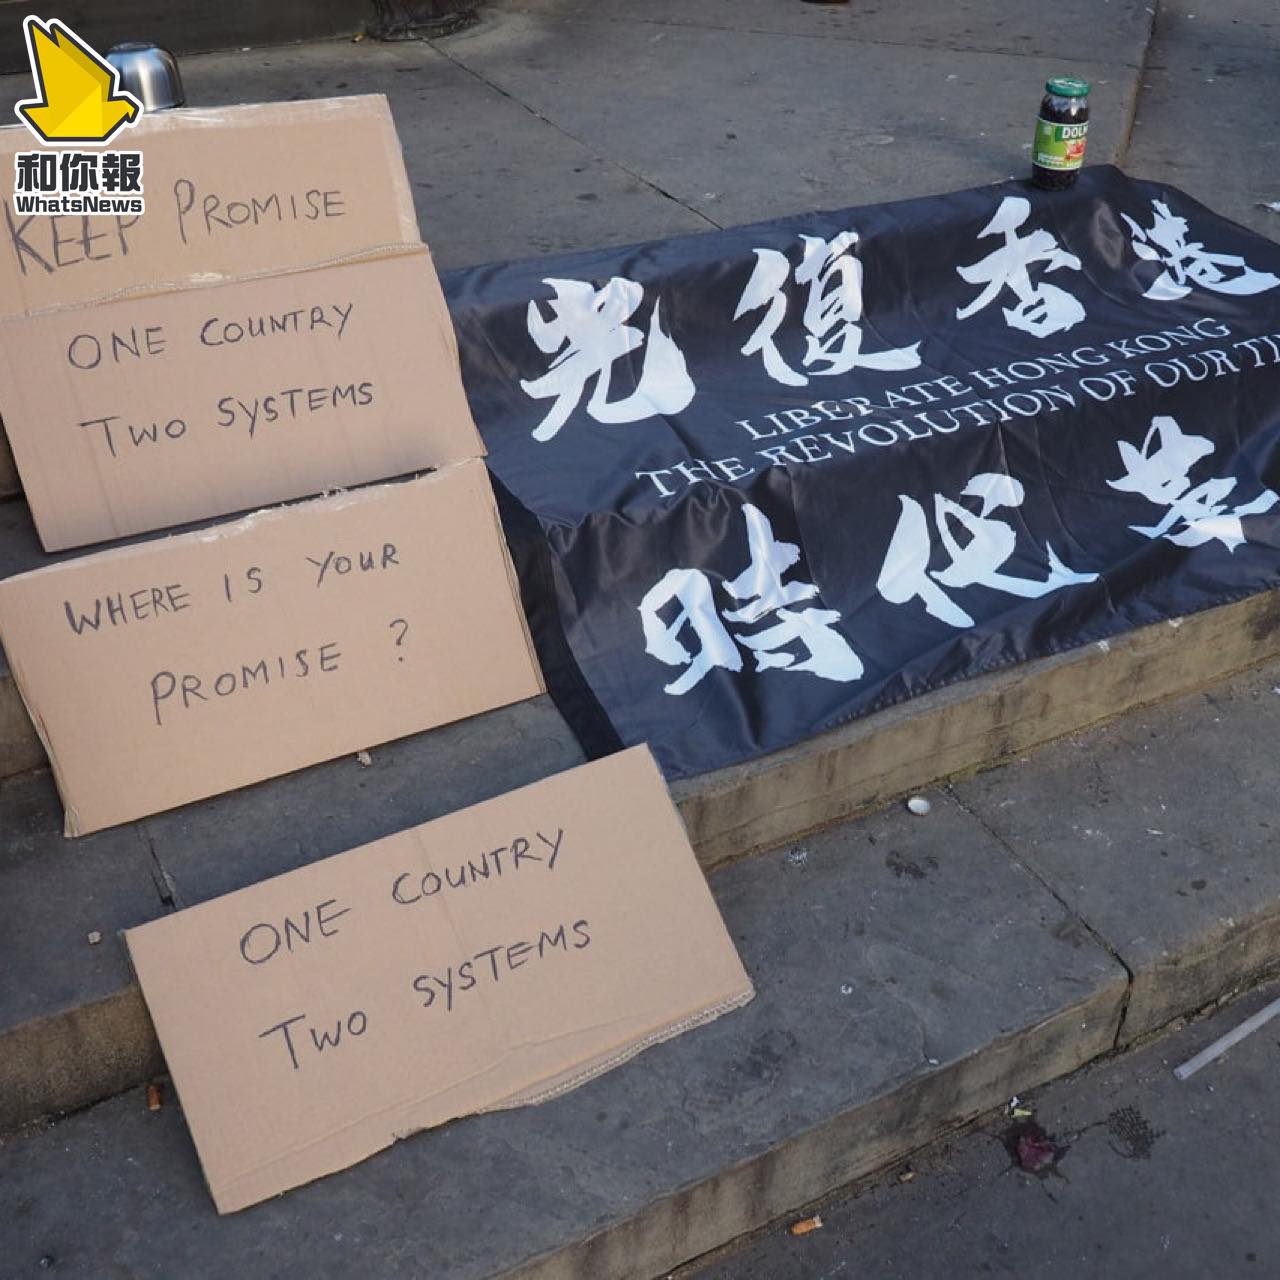 和你報
WhatsNews
KEEP PROMISE
ONE COUNTRY
TWO SYSTEMS
WHERE IS YOUR
PROMISE ?
ONE COUNTRY
TWO SYSTEMS
光復香港
LIBERATE HONG KONG
THE REVOLUTION OF OUR
時代革